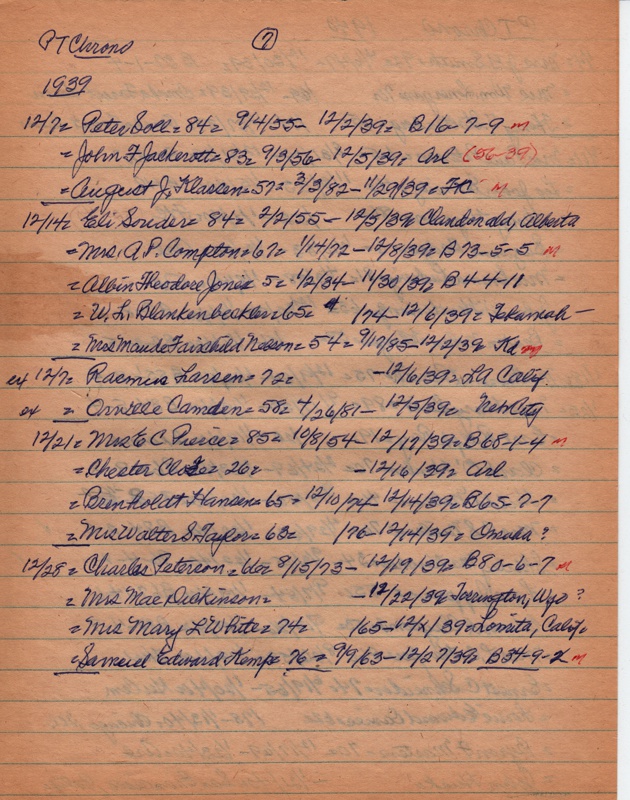 PT Chrono (7)
1939
12/7= Peter Soll= 84= 9/4/55- 12/2/39= B16-7-9 m
= John F Jackerott= 83= 9/3/56- 12/5/39= Arl (56-39)
= August J. Klarsen= 57= 3/3/82-11/29/39= FC m
12/14= Eli Souder= 84= 2/2/55- 12/5/39= Clandonald, Alberta
= Mrs, A.P. Compton= 67= 1/14/72-12/8/39= B73-5-5 m
= Albin Theodore Jones 5= 1/2/34- 11/30/39= B4-4-11
= W. L. Blankenbeckler= 65= /74-12/6/39= Tekamah-
= Mrs Maude Fairchild Nelson= 54= 9/17/85-12/2/39 m
ex 12/7= Rasmus Larsen= 72= -12/6/39= LA Calif.
ex = Orville Camden= 58= 4/26/81- 12/5/39= City
12/21= Mrs E C Pierce= 85= 10/8/54-12/17/39= B68-1-4 m
= Chester 26= -12/16/39= Arl
= Bernholdt Hansen= 65= 12/10/74-12/14/39= B65-7-7
= Mrs Walter S Taylor= 63= /76-12/14/39= Omaha ?
12/28= Charles Peterson= 66= 8/15/73-12/19/39= B80-6-7 m
= Mrs Mae Dickinson= -12/22/39= Torrington, Wyo ?
= Mrs Mary L White= 74= /65-12/ /39= Lomita, Calif=
= Samuel Edward Kemp= 76= 9/9/63-12/27/39= B34-9-2 m